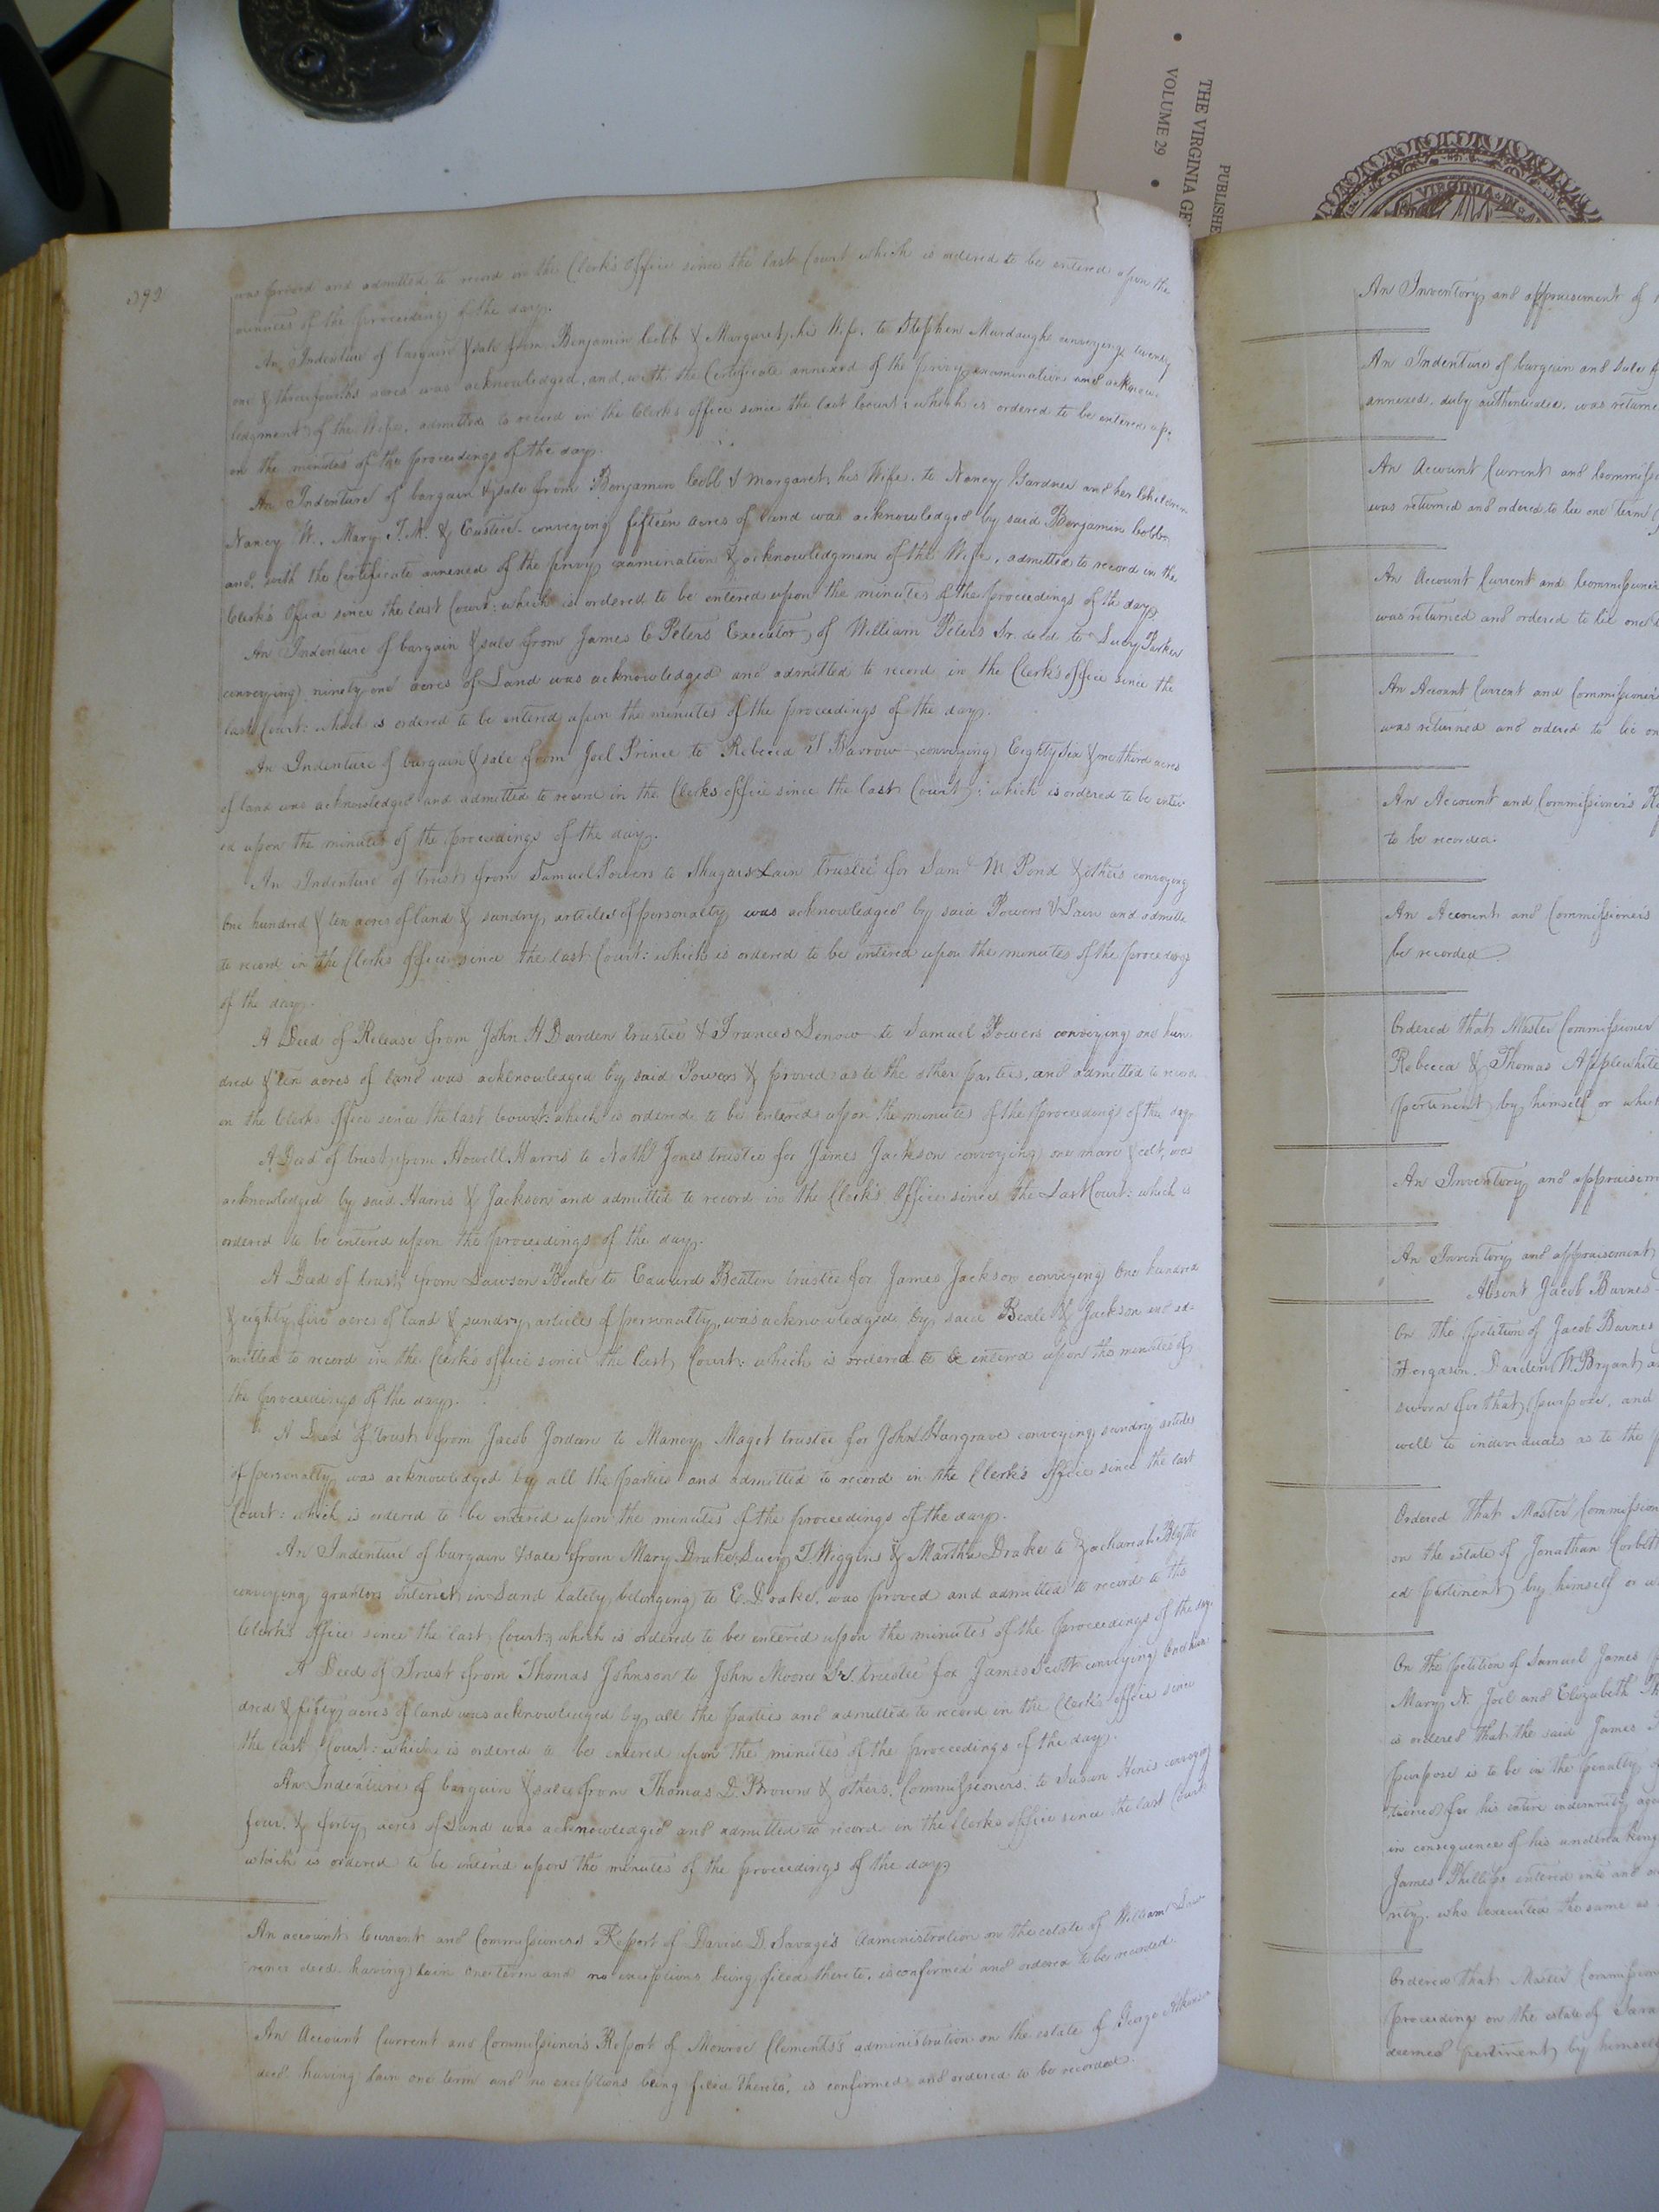 THE VIRGINIA GE
VOLUME 29
PUBLISHE
VIRGINIA IN
was proved and admitted to record in the Clerk's Office since the last Court which is ordered to be entered upon the
minutes of the proceedings of the day.
An Indenture of bargain & sale from Benjamin Cobb & Margaret, his Wife, to Stephen Murdaugh conveying twenty
one & three fourths acres was acknowledged, and, with the Certificate annexed of the privy examination and acknow
ledgment of the Wife, admitted to record in the Clerk's office since the last Court; which is ordered to be entered up
on the minutes of the proceedings of the day.
An Indenture of bargain & sale from Benjamin Cobb & Margaret, his Wife, to Nancy Gardner and her Children
Nancy W., Mary T. A. & Eustice conveying fifteen acres of land was acknowledged by said Benjamin Cobb
and, with the Certificate annexed of the privy examination & acknowledgment of the Wife, admitted to record in the
Clerk's Office since the last Court: which is ordered to be entered upon the minutes of the proceedings of the day.
An Indenture of bargain & sale from James C Peters Executor, of William Peters Sr. decd. to Lucy Parker
conveying ninety one acres of Land was acknowledged and admitted to record in the Clerk's office since the
last Court: which is ordered to be entered upon the minutes of the proceedings of the day.
An Indenture of bargain & sale from Joel Prince to Rebecca T Barrow conveying Eighty Six & one third acres
of land was acknowledged and admitted to record in the Clerks office since the last Court; which is ordered to be enter
ed upon the minutes of the proceedings of the day.
An Indenture of trust from Samuel Powers to Lain trustee for Saml M Pond & others conveying
One hundred & ten acres of land & sundry articles of personalty was acknowledged by said Powers & Lain and admitted
to record in the Clerks office since the last Court: which is ordered to be entered upon the minutes of the proceedings
of the day.
A Deed of Release from John H Darden trustee & Frances Lenow to Samuel Powers conveying one hun
dred & ten acres of land was acknowledged by said Powers & proved as to the other parties, and admitted to record
in the Clerks office since the last Court: which is ordered to be entered upon the minutes of the proceedings of the day.
A Deed of trust from Howell Harris to Nathl Jones trustee for James Jackson conveying one mare & colt, was
acknowledged by said Harris & Jackson and admitted to record in the Clerk's Office since the Last Court: which is
ordered to be entered upon the proceedings of the day.
A Deed of trust, from Lawson Beale to Edward Beaton trustee for James Jackson conveying One hundred
& eighty five acres of land & sundry articles of personalty, was acknowledged by said Beale & Jackson and ad-
mitted to record in the Clerk's office since the last Court: which is ordered to be entered upon the minutes of
the proceedings of the day.
A Deed of trust from Jacob Jordan to Maney Maget trustee for John Hargrave conveying sundry articles
of personalty was acknowledged by all the parties and admitted to record in the Clerk's Office since the last
Court: which is ordered to be entered upon the minutes of the proceedings of the day.
An Indenture of bargain & sale from Mary Drake, Lucy T. Wiggins & Martha Drake to Zachariah Blythe
conveying grantors interest in Land lately belonging to E. Drake, was proved and admitted to record to the
Clerk's Office since the last Court, which is ordered to be entered upon the minutes of the proceedings of the day.
A Deed of Trust from Thomas Johnson to John Moore Sr. trustee for James Scott conveying One hun
dred & fifty acres of land was acknowledged by all the parties and admitted to record in the Clerk's office since
the last Court: which is ordered to be entered upon the minutes of the proceedings of the day.
An Indenture of bargain & sale from Thomas D. Brown & others, Commissioners, to Susan Hines conveying
four & forty acres of Land was acknowledged and admitted to record in the Clerks office since the last Court
which is ordered to be entered upon the minutes of the proceedings of the day
An account Current and Commissioners Report of David D. Savage's Administration on the estate of William Law
rence decd. having lain one term and no exceptions being filed thereto, is confirmed and ordered to be recorded.
An Account Current and Commissioner's Report of Monroe Clements's administration on the estate of George Atkinson
decd having lain one term and no exceptions being filed thereto, is confirmed and ordered to be recorded.
An Inventory and appraisement of
An Indenture of bargain and Sale
annexed, duly authenticated, was returne
An Account Current and Commissi
was returned and ordered to lie one term
An Account Current and Commissioner
was returned and ordered to lie one
An Account Current and Commissioner's
was returned and ordered to lie on
An Account and Commissioner's
to be recorded.
An Account and Commissioner's
be recorded.
Ordered that Master Commissioner
Rebecca & Thomas Applewhite
pertinent, by himself or which
An Inventory and appraisem
An Inventory and appraisement
Absent Jacob Barnes
On the petition of Jacob Barnes
Fergason, Darden, W. Bryant, a
sworn for that purpose, and
well to individuals as to the
Ordered that Master Commission
on the estate of Jonathan Corbett
ed pertinent by himself or w
On the petition of Samuel James
Mary N. Joel and Elizabeth
is ordered that the said James
purpose is to be in the penalty of
tioned for his entire indemnity aga
in consequence of his undertaking
James Phillips entered into and
rity, who executed the same as
Ordered that Master Commission
proceeding on the estate of Sara
deemed pertinent, by himself